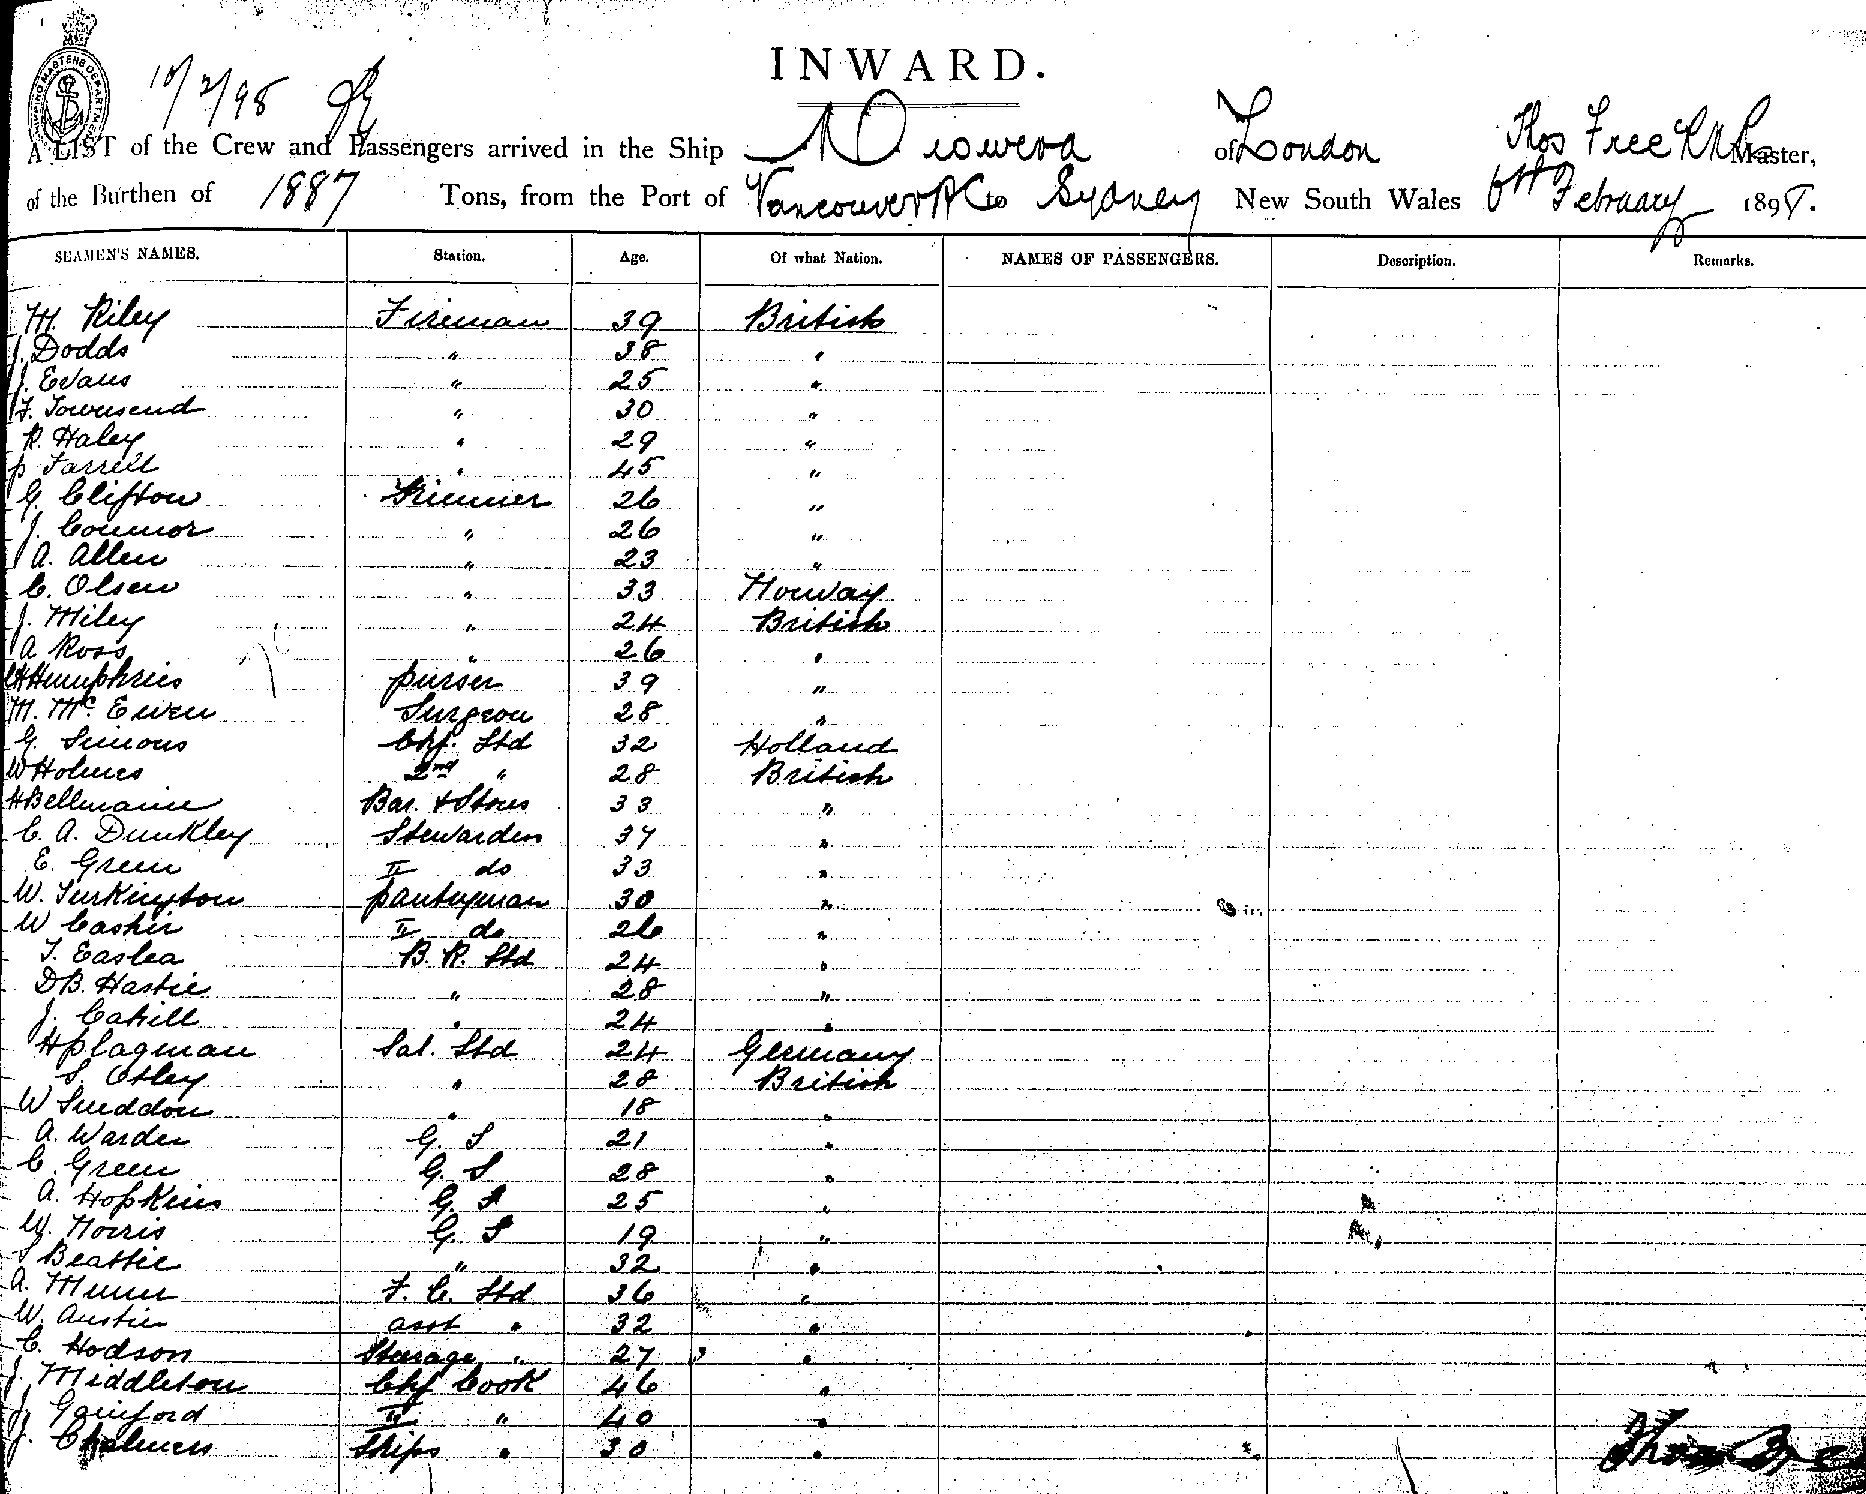 10/2/98
INWARD.
A LIST of the Crew and Passengers arrived in the Ship Miowera of London Thos Free RNR Master,
of the Burthen of 1887 Tons, from the Port of Vancouver BC to Sydney New South Wales 6th February 1898.
SEAMEN'S NAMES. Station. Age. Of what Nation. NAMES OF PASSENGERS. Description. Remarks.
M. Riley Fireman 39 British
J. Dodds " 38 "
J. Evans " 25 "
F. Townsend " 30 "
R. Haley " 29 "
P Farrell " 45 "
G. Clifton Trimmer 26 "
J. Connor " 26 "
A. Allen " 23 "
C. Olsen " 33 Norway
J. Miley " 24 British
A Ross " 26 "
Humphries purser 39 "
M. McEwen Surgeon 28 "
G. Simons Chf. Std 32 Holland
W Holmes 2nd " 28 British
H Bellmaine Bar. & Stores 33 "
C. A. Dunkley Stewardess 37 "
E. Green II do 33 "
W. Turkington pantryman 30 "
W Caskir II do 26 "
T. Easlea B. R. Std 24 "
D B. Hastie " 28 "
J. Cahill " 24 "
H plagman Sal. Std 24 Germany
S. Otley " 28 British
W Sneddon " 18 "
A. Warden G. S 21 "
C. Green G. S 28 "
A. Hopkins G. S 25 "
W. Norris G. S 19 "
S Beattie " 32 "
A. Munn F. C. Std 36 "
W. Austin asst " 32 "
C. Hodson Steerage " 27 "
J. Middleton Chf Cook 46 "
J. Gainford II " 40 "
J. Chalmers Ships " 30 "